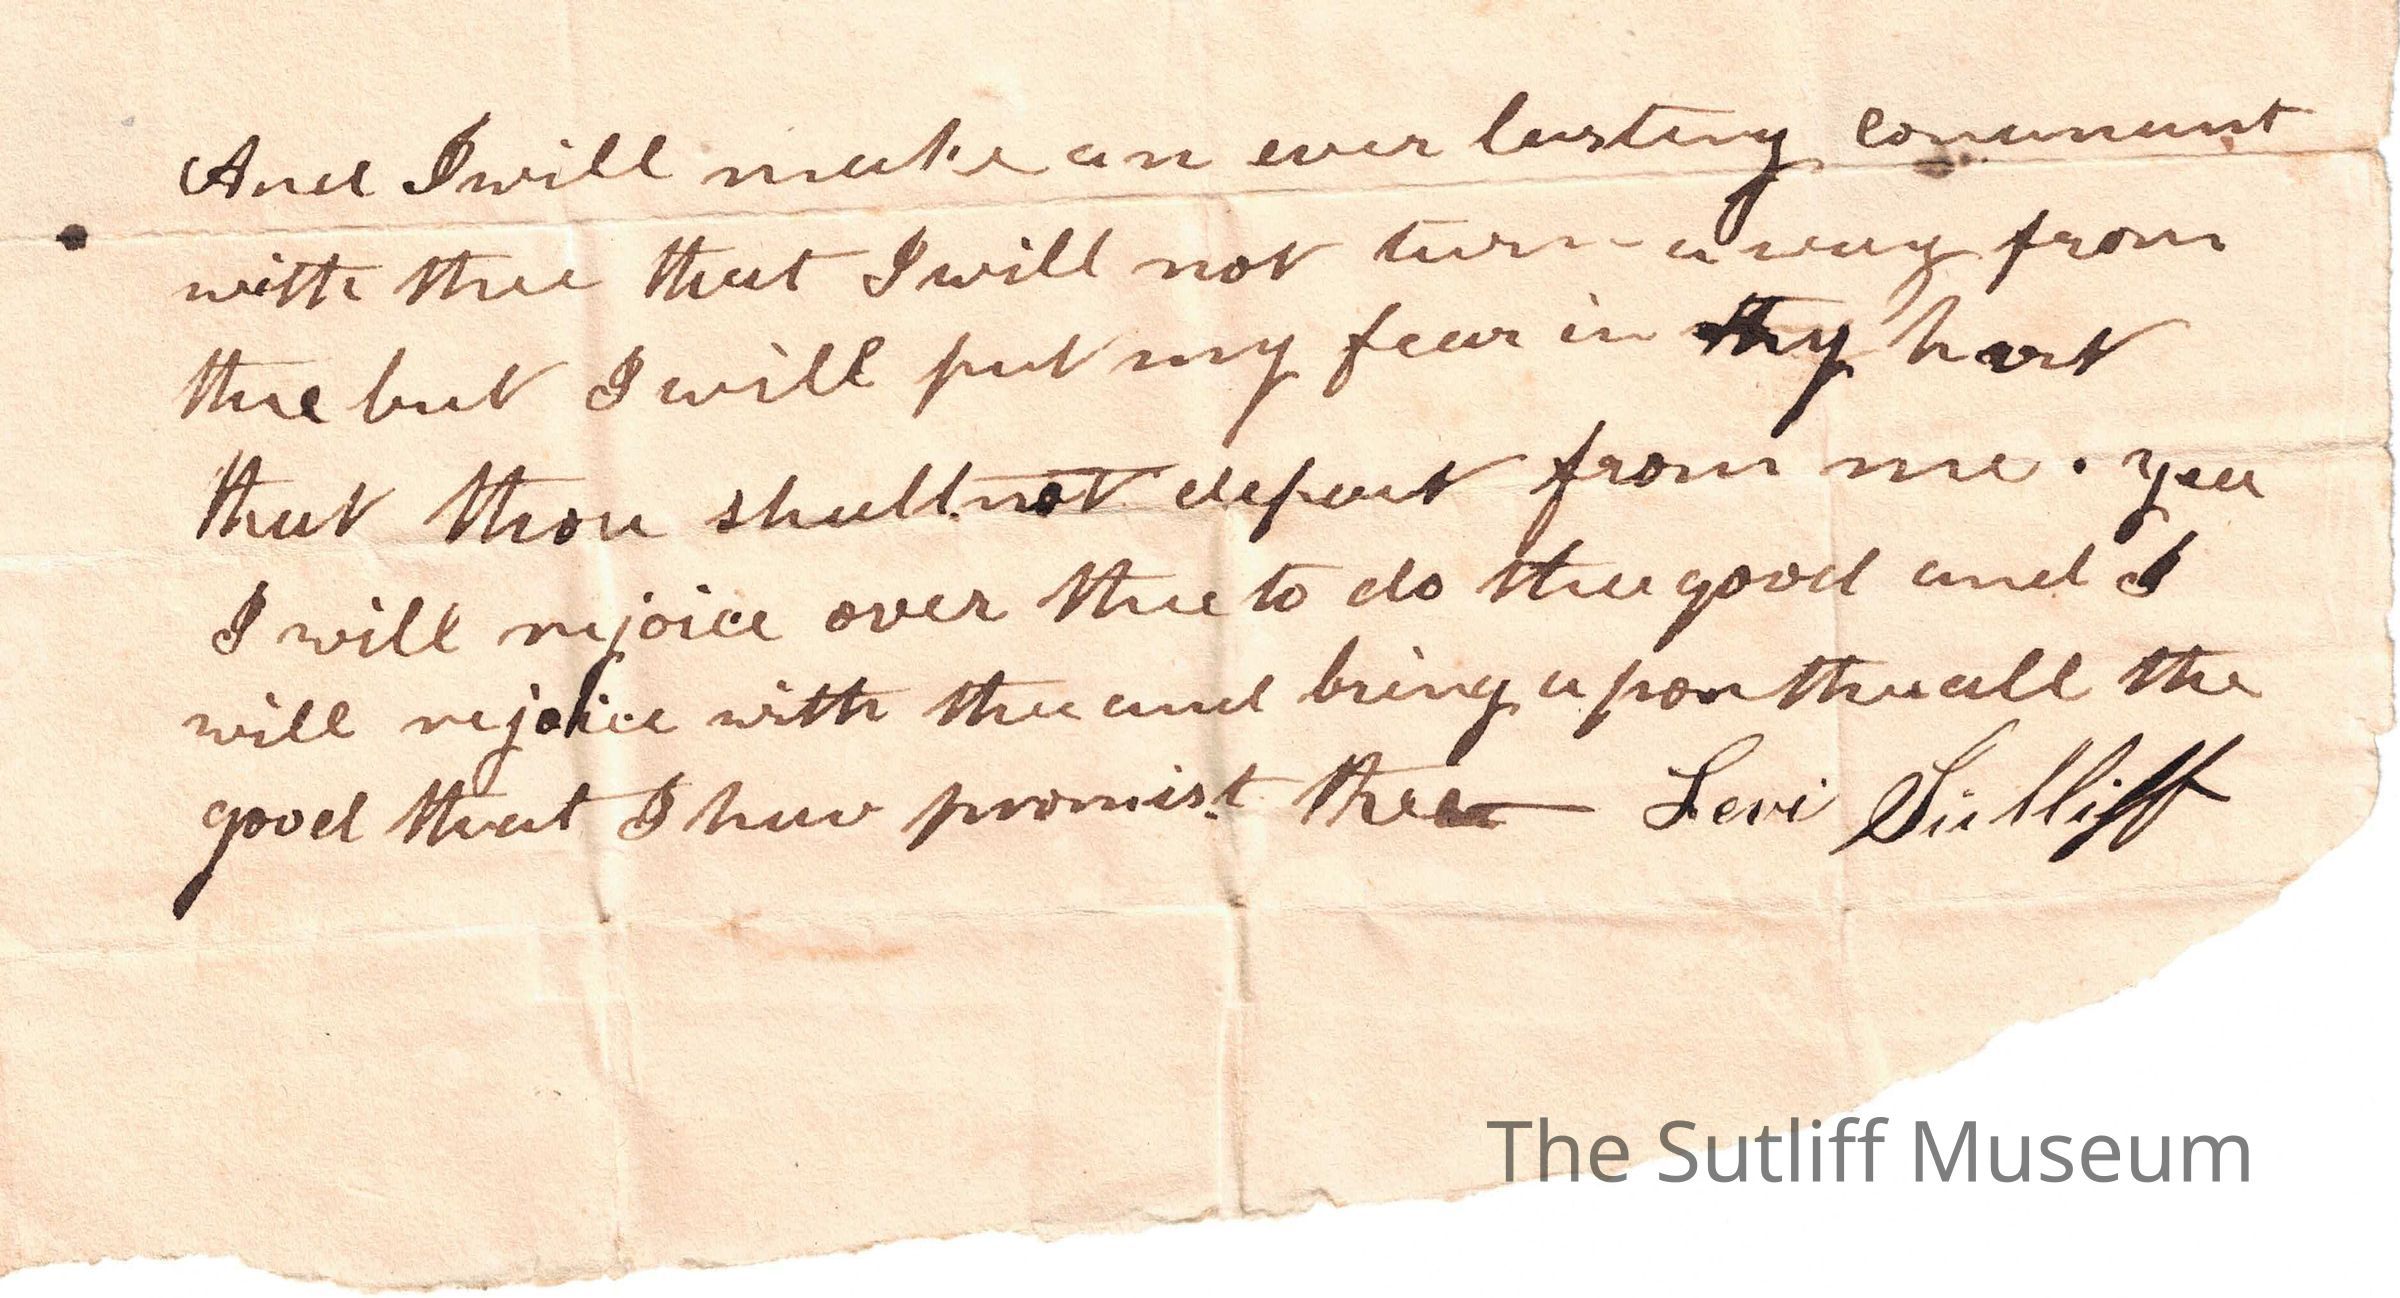 And I will make an ever lasting conunant
with thee that I will not turn away from
thee but I will put my fear in thy hart
that thou shall not depart from me . yea
I will rejoice over thee to do thee good and I
will rejoice with thee and bring upon thee all the
good that I hav promist thee — Levi Sutliff
The Sutliff Museum